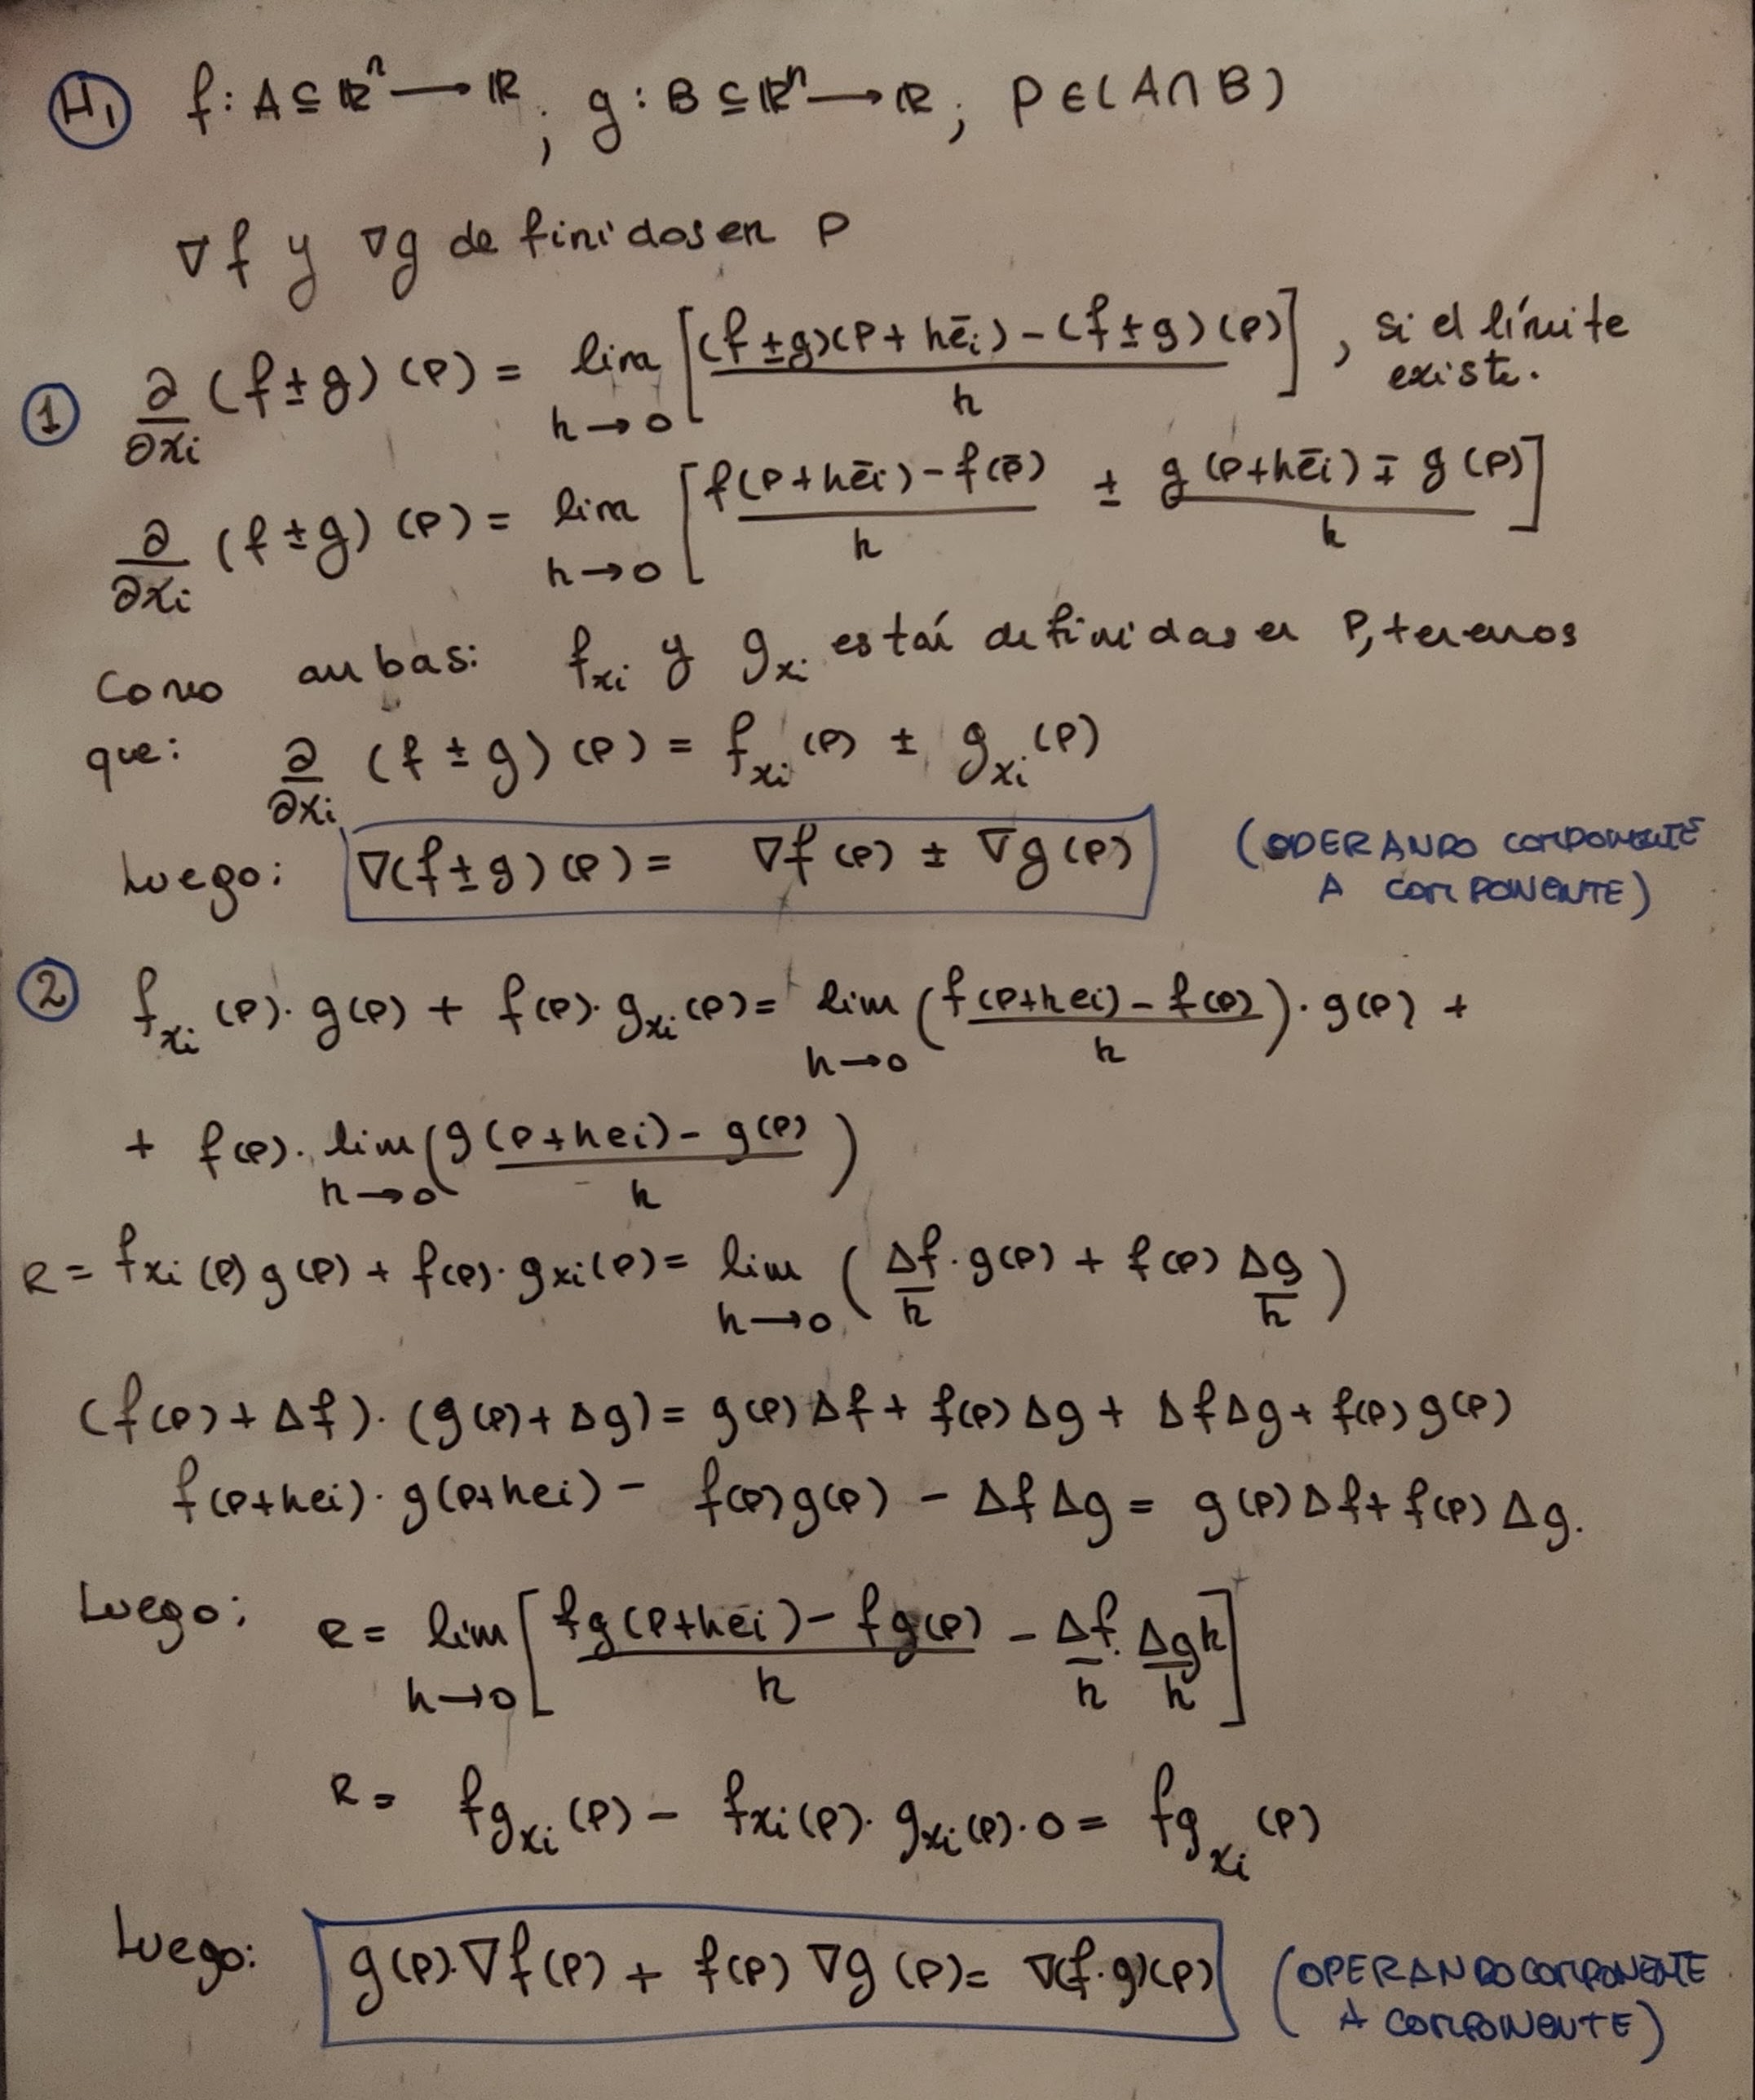 H₁ f: A ⊆ ℝⁿ → ℝ ; g: B ⊆ ℝⁿ → ℝ ; P ∈ (A ∩ B)
∇f y ∇g definidos en P
1 ∂/∂xᵢ (f±g)(P) = lim h→0 [((f±g)(P+hēᵢ) − (f±g)(P))/h] , si el límite existe.
∂/∂xᵢ (f±g)(P) = lim h→0 [(f(P+hēi) − f(p̄))/h ± (g(P+hēi) ∓ g(P))/h]
Como ambas: f_xi y g_xi están definidas en P, tenemos
que: ∂/∂xi (f±g)(P) = f_xi(P) ± g_xi(P)
Luego: ∇(f±g)(P) = ∇f(P) ± ∇g(P) (OPERANDO COMPONENTE A COMPONENTE)
2 f_xi(P)·g(P) + f(P)·g_xi(P) = lim h→0 ((f(P+hei) − f(P))/h)·g(P) +
+ f(P)· lim h→0 ((g(P+hei) − g(P))/h)
R = f_xi(P) g(P) + f(P)·g_xi(P) = lim h→0 (Δf/h · g(P) + f(P) Δg/h)
(f(P)+Δf)·(g(P)+Δg) = g(P)Δf + f(P)Δg + ΔfΔg + f(P)g(P)
f(P+hei)·g(P+hei) − f(P)g(P) − ΔfΔg = g(P)Δf + f(P)Δg.
Luego: R = lim h→0 [(fg(P+hēi) − fg(P))/h − Δf/h · Δg/h h]
R = fg_xi(P) − f_xi(P)·g_xi(P)·0 = fg_xi(P)
Luego: g(P)·∇f(P) + f(P)∇g(P) = ∇(f·g)(P) (OPERANDO COMPONENTE A COMPONENTE)